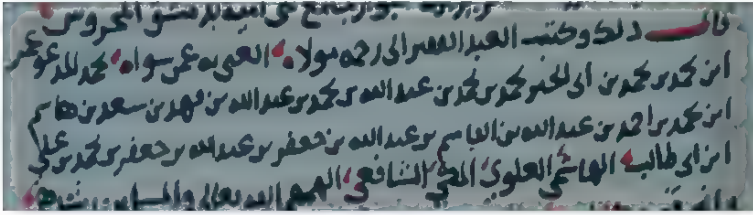 بدمشق المحروس
قال ذلك وكتبه العبد الفقير الى رحمة مولاه الغنى به عمن سواه محمد المدعو عمر
ابن محمد بن محمد بن ابى الخير محمد بن محمد بن عبد الله بن محمد بن عبد الله بن فهد بن سعد بن هاشم
ابن محمد بن احمد بن عبد الله بن القاسم بن عبد الله بن جعفر بن عبد الله بن جعفر بن محمد بن على
ابن ابى طالب الهاشمى العلوى المكى الشافعى الهمه الله تعالى